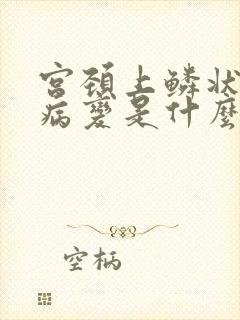 宫颈上鳞状
病变是什麼
空柄